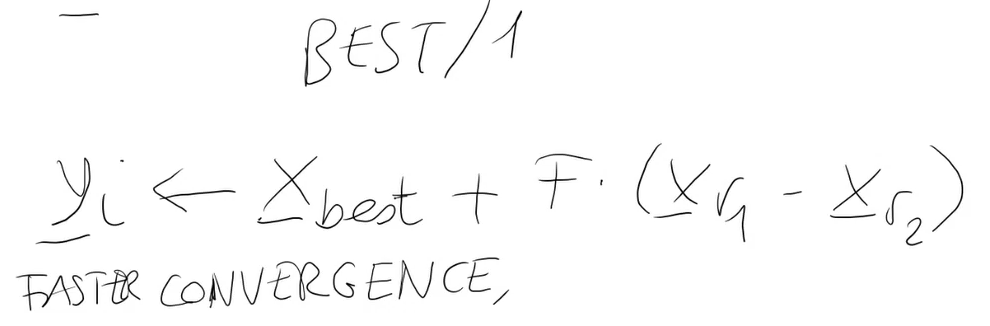 BEST/1
y̲i ← x̲best + F · (x̲r1 - x̲r2)
FASTER CONVERGENCE,